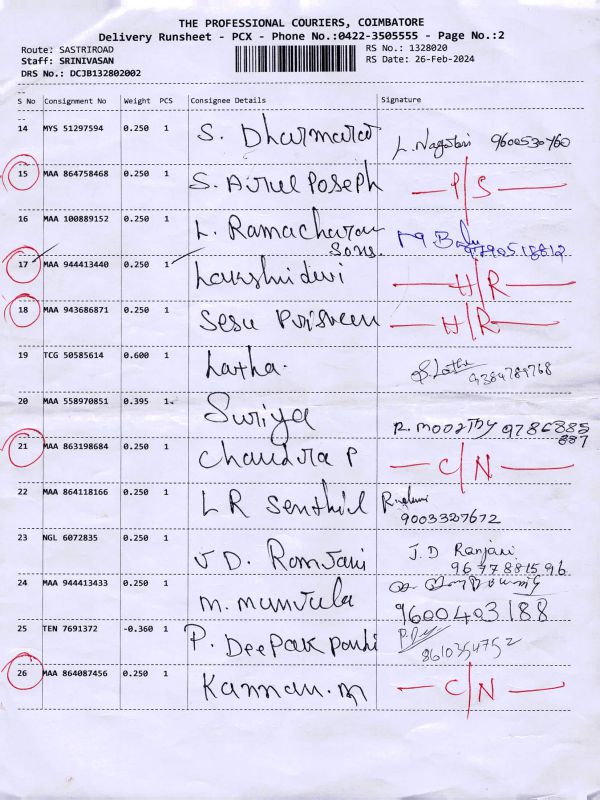 THE PROFESSIONAL COURIERS, COIMBATORE
Delivery Runsheet - PCX - Phone No.:0422-3505555 - Page No.:2
Route: SASTRIROAD RS No.: 1328020
Staff: SRINIVASAN RS Date: 26-Feb-2024
DRS No.: DCJB132802002
S No Consignment No Weight PCS Consignee Details Signature
14 MYS 51297594 0.250 1 S. Dharmaraj 9600530760
15 MAA 864758468 0.250 1 S. Airul Poseph P/S
16 MAA 100889152 0.250 1 L. Ramacharan
Sons 9790518812
17 MAA 944413440 0.250 1 Lakshmi devi H/R
18 MAA 943686871 0.250 1 Sesu H/R
19 TCG 50585614 0.600 1 Latha. S. Latha
9384789768
20 MAA 558970851 0.395 1 Suriya R. MOORTHY 9786885
887
21 MAA 863198684 0.250 1 Chandra P C/N
22 MAA 864118166 0.250 1 L R Senthil
9003327672
23 NGL 6072835 0.250 1 J D. Ranjani J. D Ranjani
9677881596
24 MAA 944413433 0.250 1 M. Manjula
9600403188
25 TEN 7691372 -0.360 1 P. Deepak
8610354752
26 MAA 864087456 0.250 1 Kannan. M C/N